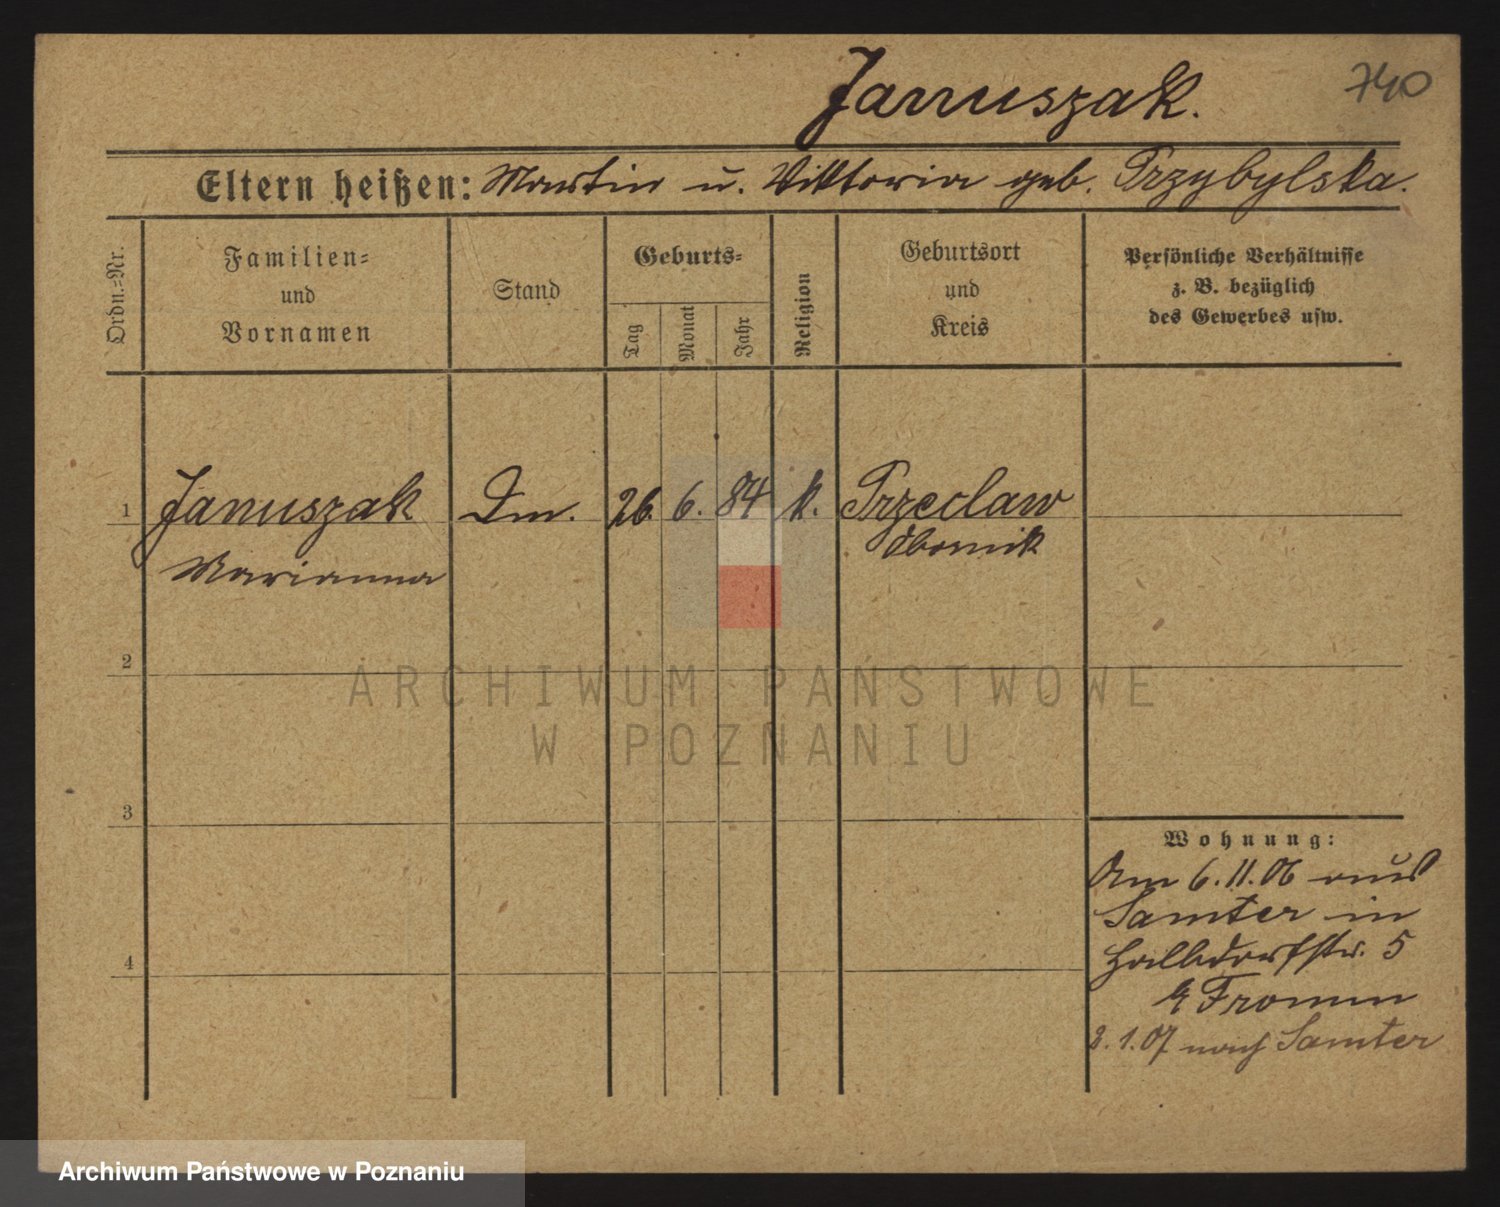 Januszak.
740
Eltern heißen: Martin u. Viktoria geb. Przybylska.
Ordn.-Nr.
Familien-
und
Vornamen
Stand
Geburts-
Tag
Monat
Jahr
Religion
Geburtsort
und
Kreis
Persönliche Verhältnisse
z. B. bezüglich
des Gewerbes usw.
1 Januszak Dm. 26. 6. 84 k. Przeclaw
Marianna Obornik
2
3
4
Wohnung:
Am 6.11.06 aus
Samter in
Halbdorfstr. 5
b Fromm
2.1.07 nach Samter
ARCHIWUM PAŃSTWOWE
W POZNANIU
Archiwum Państwowe w Poznaniu